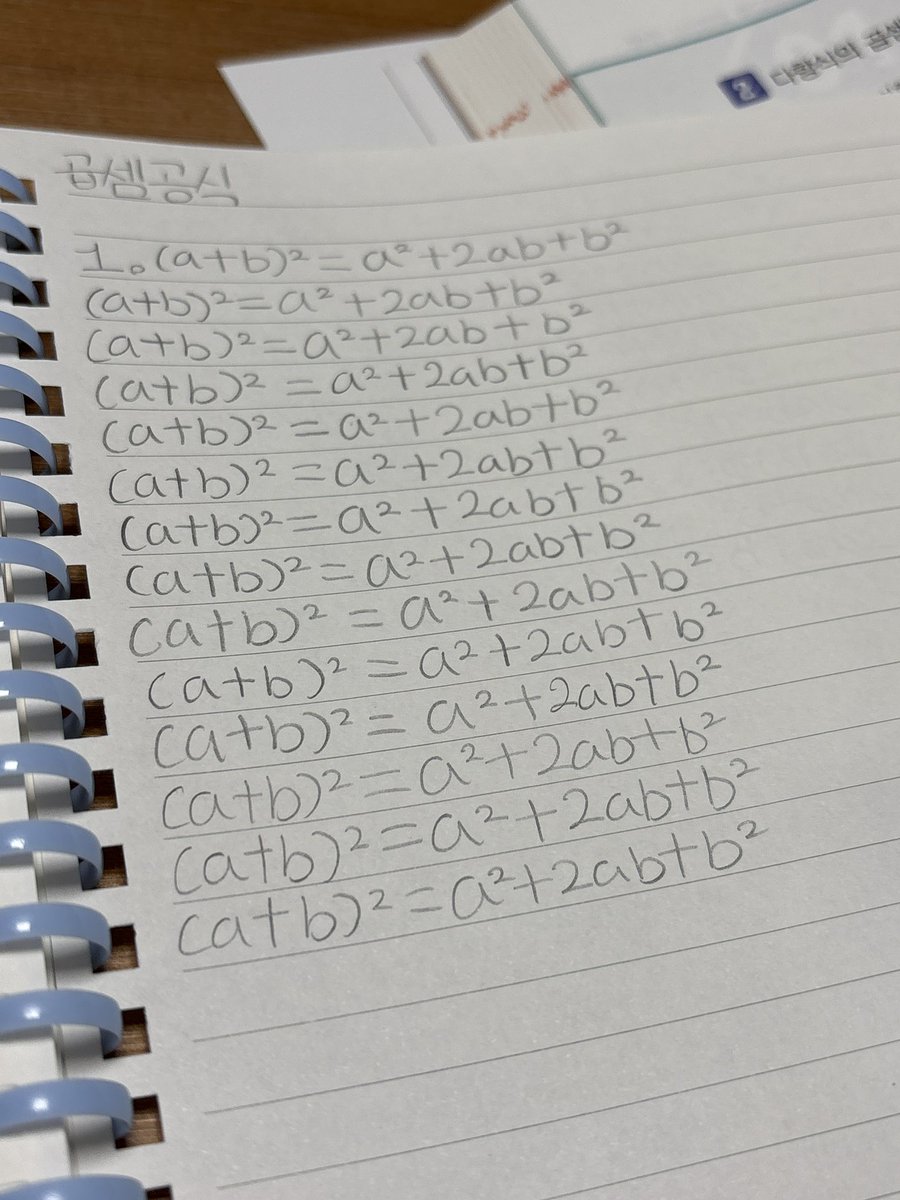 2 다항식의 곱셈
곱셈공식
1. (a+b)² = a²+2ab+b²
(a+b)²=a²+2ab+b²
(a+b)²=a²+2ab+b²
(a+b)² =a²+2ab+b²
(a+b)² =a²+2ab+b²
(a+b)² =a²+2ab+b²
(a+b)²=a²+2ab+b²
(a+b)²=a²+2ab+b²
(a+b)² =a²+2ab+b²
(a+b)² =a²+2ab+b²
(a+b)²= a²+2ab+b²
(a+b)²=a²+2ab+b²
(a+b)²=a²+2ab+b²
(a+b)²=a²+2ab+b²